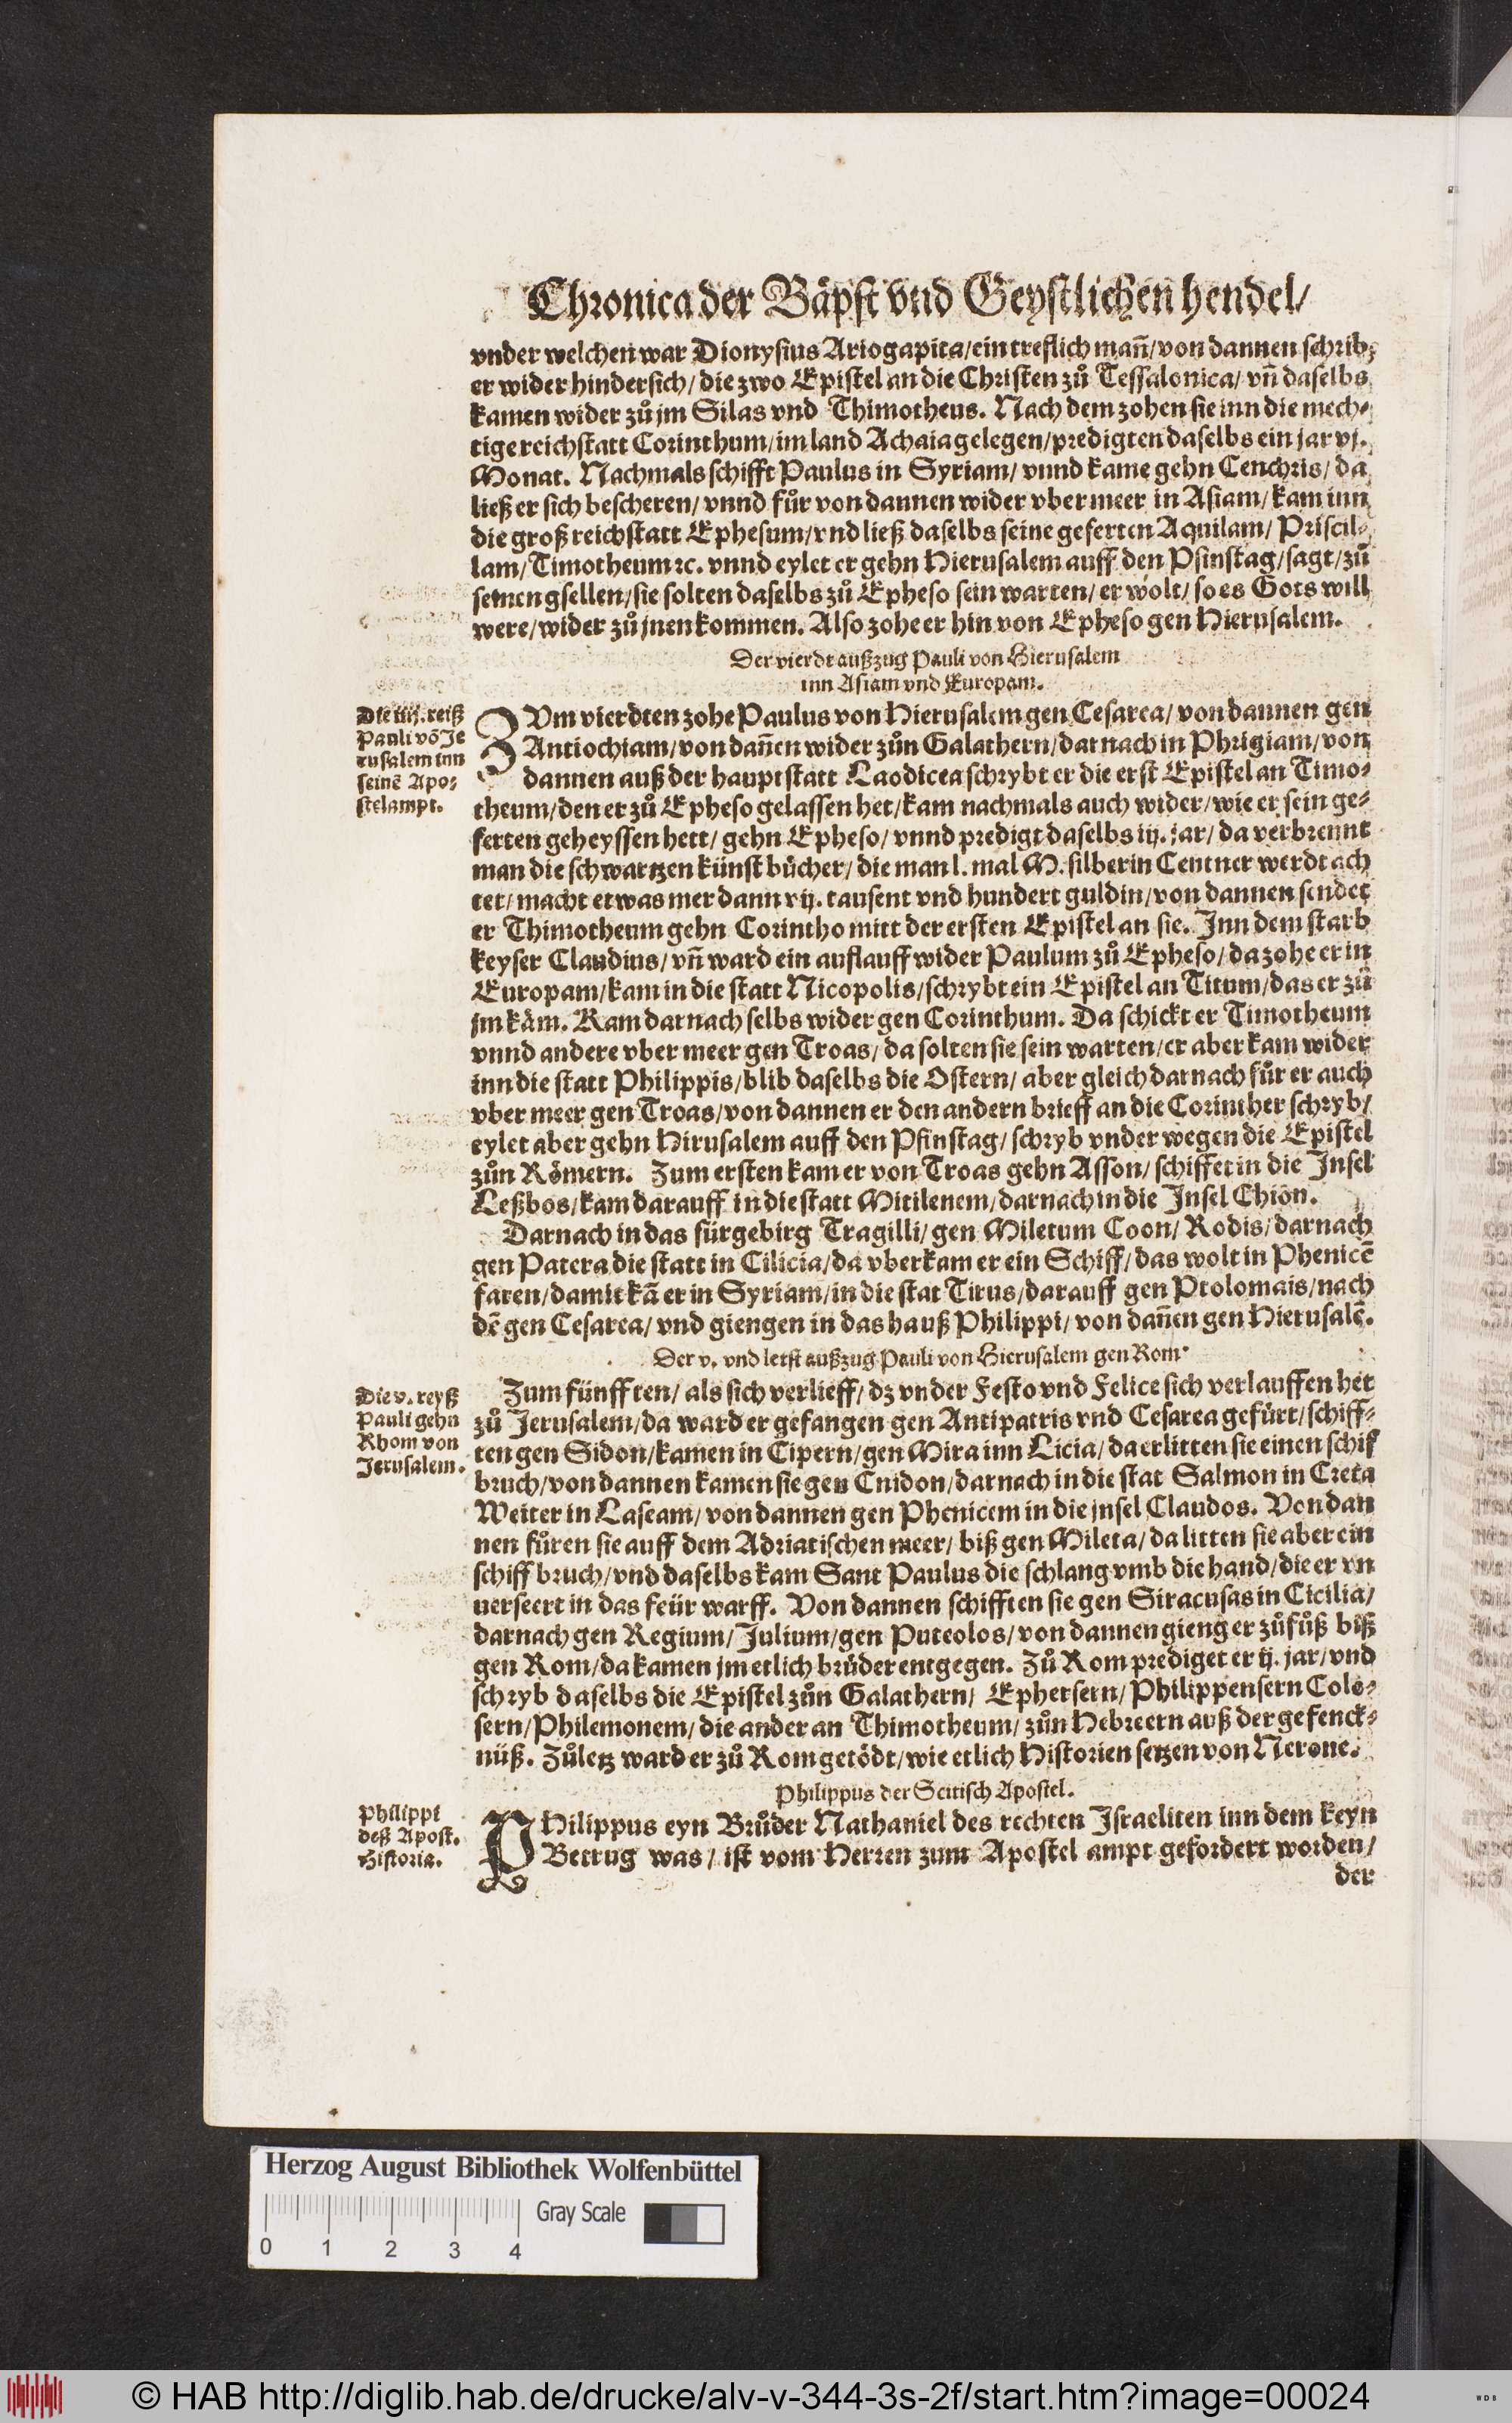 Chronica der Bäpſt vnd Geyſtlichen hendel/
vnder welchen war Dionyſius Ariogapita/ein treflich mañ/von dannen ſchrib
er wider hinderſich/ die zwo Epiſtel an die Chriſten zů Teſſalonica/ vñ daſelbs
kamen wider zů jm Silas vnd Thimotheus. Nach dem zohen ſie inn die mech⸗
tige reichſtatt Corinthum/im land Achaia gelegen/predigten daſelbs ein jar vj.
Monat. Nachmals ſchifft Paulus in Syriam/ vnnd kame gehn Cenchris/ da
ließ er ſich beſcheren/ vnnd fůr von dannen wider vber meer in Aſiam/ kam inn
die groß reichſtatt Epheſum/vnd ließ daſelbs ſeine geferten Aquilam/ Priſcil⸗
lam/ Timotheum ꝛc. vnnd eylet er gehn Hieruſalem auff den Pfinſtag/ſagt/zů
ſeinen gſellen/ſie ſolten daſelbs zů Epheſo ſein warten/ er wölt/ ſo es Gots will
were/wider zů jnen kommen. Alſo zohe er hin von Epheſo gen Hieruſalem.
Der vierdt außzug Pauli von Hieruſalem
inn Aſiam vnd Europam.
Die iiij. reiß
Pauli võ Je
ruſalem inn
ſeinẽ Apo⸗
ſtelampt.
ZVm vierdten zohe Paulus von Hieruſalem gen Ceſarea/ von dannen gen
Antiochiam/von dañen wider zůn Galathern/darnach in Phrigiam/von
dannen auß der hauptſtatt Laodicea ſchrybt er die erſt Epiſtel an Timo⸗
theum/den er zů Epheſo gelaſſen het/kam nachmals auch wider/wie er ſein ge⸗
ferten geheyſſen hett/ gehn Epheſo/ vnnd predigt daſelbs iij. jar/ da verbrennt
man die ſchwartzen künſt bücher/ die man l. mal M. ſilberin Centner werdt ach
tet/ macht etwas mer dann vij. tauſent vnd hundert guldin/von dannen ſendet
er Thimotheum gehn Corintho mitt der erſten Epiſtel an ſie. Inn dem ſtarb
keyſer Claudius/ vñ ward ein aufflauff wider Paulum zů Epheſo/ da zohe er in
Europam/kam in die ſtatt Nicopolis/ſchrybt ein Epiſtel an Titum/das er zů
jm käm. Kam darnach ſelbs wider gen Corinthum. Da ſchickt er Timotheum
vnnd andere vber meer gen Troas/ da ſolten ſie ſein warten/er aber kam wider
inn die ſtatt Philippis/blib daſelbs die Oſtern/ aber gleich darnach fůr er auch
vber meer gen Troas/von dannen er den andern brieff an die Corinther ſchryb/
eylet aber gehn Hiruſalem auff den Pfinſtag/ ſchryb vnder wegen die Epiſtel
zůn Römern. Zum erſten kam er von Troas gehn Aſſon/ ſchiffet in die Inſel
Leßbos/kam darauff in die ſtatt Mitilenem/darnach in die Inſel Chion.
Darnach in das fürgebirg Tragilli/ gen Miletum Coon/ Rodis/darnach
gen Patera die ſtatt in Cilicia/da vberkam er ein Schiff/das wolt in Phenicẽ
faren/damit kã er in Syriam/in die ſtat Tirus/darauff gen Ptolomais/nach
dẽ gen Ceſarea/ vnd giengen in das hauß Philippi/ von dañen gen Hieruſalẽ.
Der v. vnd letſt außzug Pauli von Hieruſalem gen Rom.
Die v. reyß
Pauli gehn
Rhom von
Jeruſalem.
Zum fünfften/ als ſich verlieff/ dz vnder Feſto vnd Felice ſich verlauffen het
zů Jeruſalem/da ward er gefangen gen Antipatris vnd Ceſarea gefürt/ſchiff⸗
ten gen Sidon/kamen in Cipern/gen Mira inn Licia/ da erlitten ſie einen ſchif
bruch/von dannen kamen ſie gen Cnidon/darnach in die ſtat Salmon in Creta
Weiter in Laſeam/von dannen gen Phenicem in die jnſel Claudos. Von dan
nen fůren ſie auff dem Adriatiſchen meer/ biß gen Mileta/ da litten ſie aber ein
ſchiff bruch/vnd daſelbs kam Sant Paulus die ſchlang vmb die hand/die er vn
uerſeert in das feür warff. Von dannen ſchifften ſie gen Siracuſas in Cicilia/
darnach gen Regium/ Julium/gen Puteolos/von dannen gieng er zůfůß biß
gen Rom/da kamen jm etlich brüder entgegen. Zů Rom prediget er ij. jar/vnd
ſchryb daſelbs die Epiſtel zůn Galathern/ Epherſern/ Philippenſern Colo⸗
ſern/Philemonem/die ander an Thimotheum/ zůn Hebreern auß der gefenck⸗
nüß. Zůletz ward er zů Rom getödt/wie etlich Hiſtorien ſetzen von Nerone.
Philippus der Scitiſch Apoſtel.
Philippi
deß Apoſt.
Hiſtoria.
PHilippus eyn Brůder Nathaniel des rechten Iſraeliten inn dem keyn
Betrug was/ iſt vom Herren zum Apoſtel ampt gefordert worden/
der
Herzog August Bibliothek Wolfenbüttel
Gray Scale
0 1 2 3 4
© HAB http://diglib.hab.de/drucke/alv-v-344-3s-2f/start.htm?image=00024
WDB